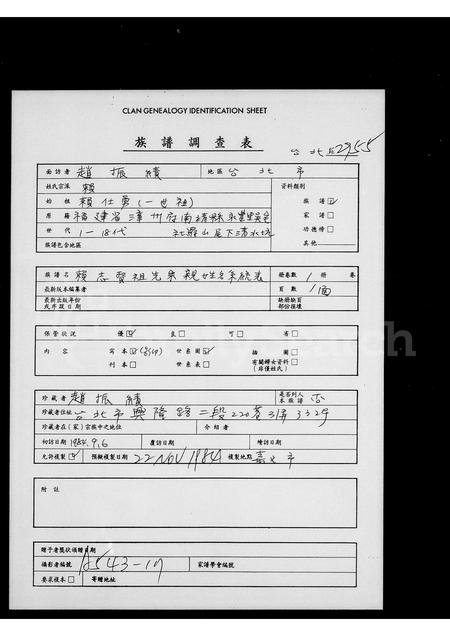 CLAN GENEALOGY IDENTIFICATION SHEET
族譜調查表
台北區2955
面訪者 趙振績 地區 台北市
姓氏宗派 賴 資料類別
始祖 賴仕勇(一世祖) 族譜☑
原籍 福建省漳州府南靖縣永豐里吳宅 家譜□
世代 1-18代 社羅山尾下清水坑 功德榜□
族譜包含地區 其他
族譜名 賴志賢祖先與親姓名系統表 冊卷數 1 冊 卷
最新版本編纂者 頁數 1面
最新出版年份或序跋日期 缺冊缺頁部份推壞
保管狀況 優☑ 良□ 可□ 劣□
內容 寫本☑ 世系圖☑ 插圖□
刊本□ 世系表□ 有關婦女資料□(非僅姓氏)
珍藏者 趙振績 是否列入本族譜 否
珍藏者住址 台北市興隆路二段220巷31弄332号
珍藏者在(家)宗族中之地位 介紹者
初訪日期 1984.9.6 覆訪日期 續訪日期
允許複製☑ 預擬複製日期 22 NOV 1984 複製地點 嘉义市
附註
贈予者獎狀頒贈日期
攝影者編號 A543-17 家譜學會編號
要求複本□ 寄贈地址